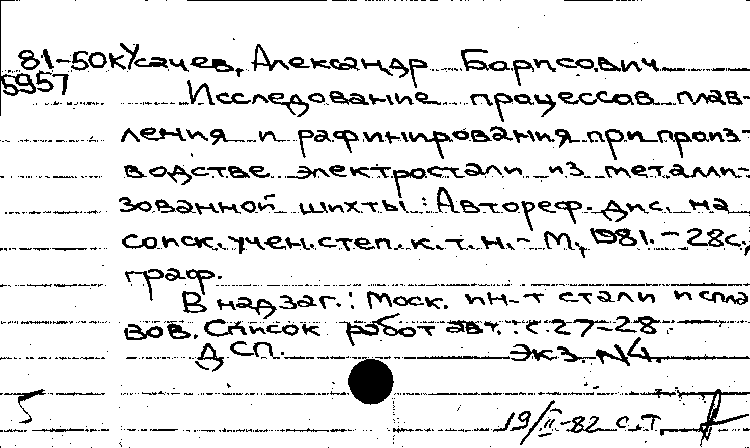 81-50к Усачев, Александр Борисович
5957
Исследование процессов плав-
ления и рафинирования при произ-
водстве электростали из металли-
зованной шихты: Автореф. дис. на
соиск. учен. степ. к. т. н. - М, 1981. - 28 с.,
граф.
В надзаг.: Моск. ин-т стали и спла
вов. Список работ авт.: с. 27-28.
ДСП. Экз. N4.
5
19/II-82 С.Т.